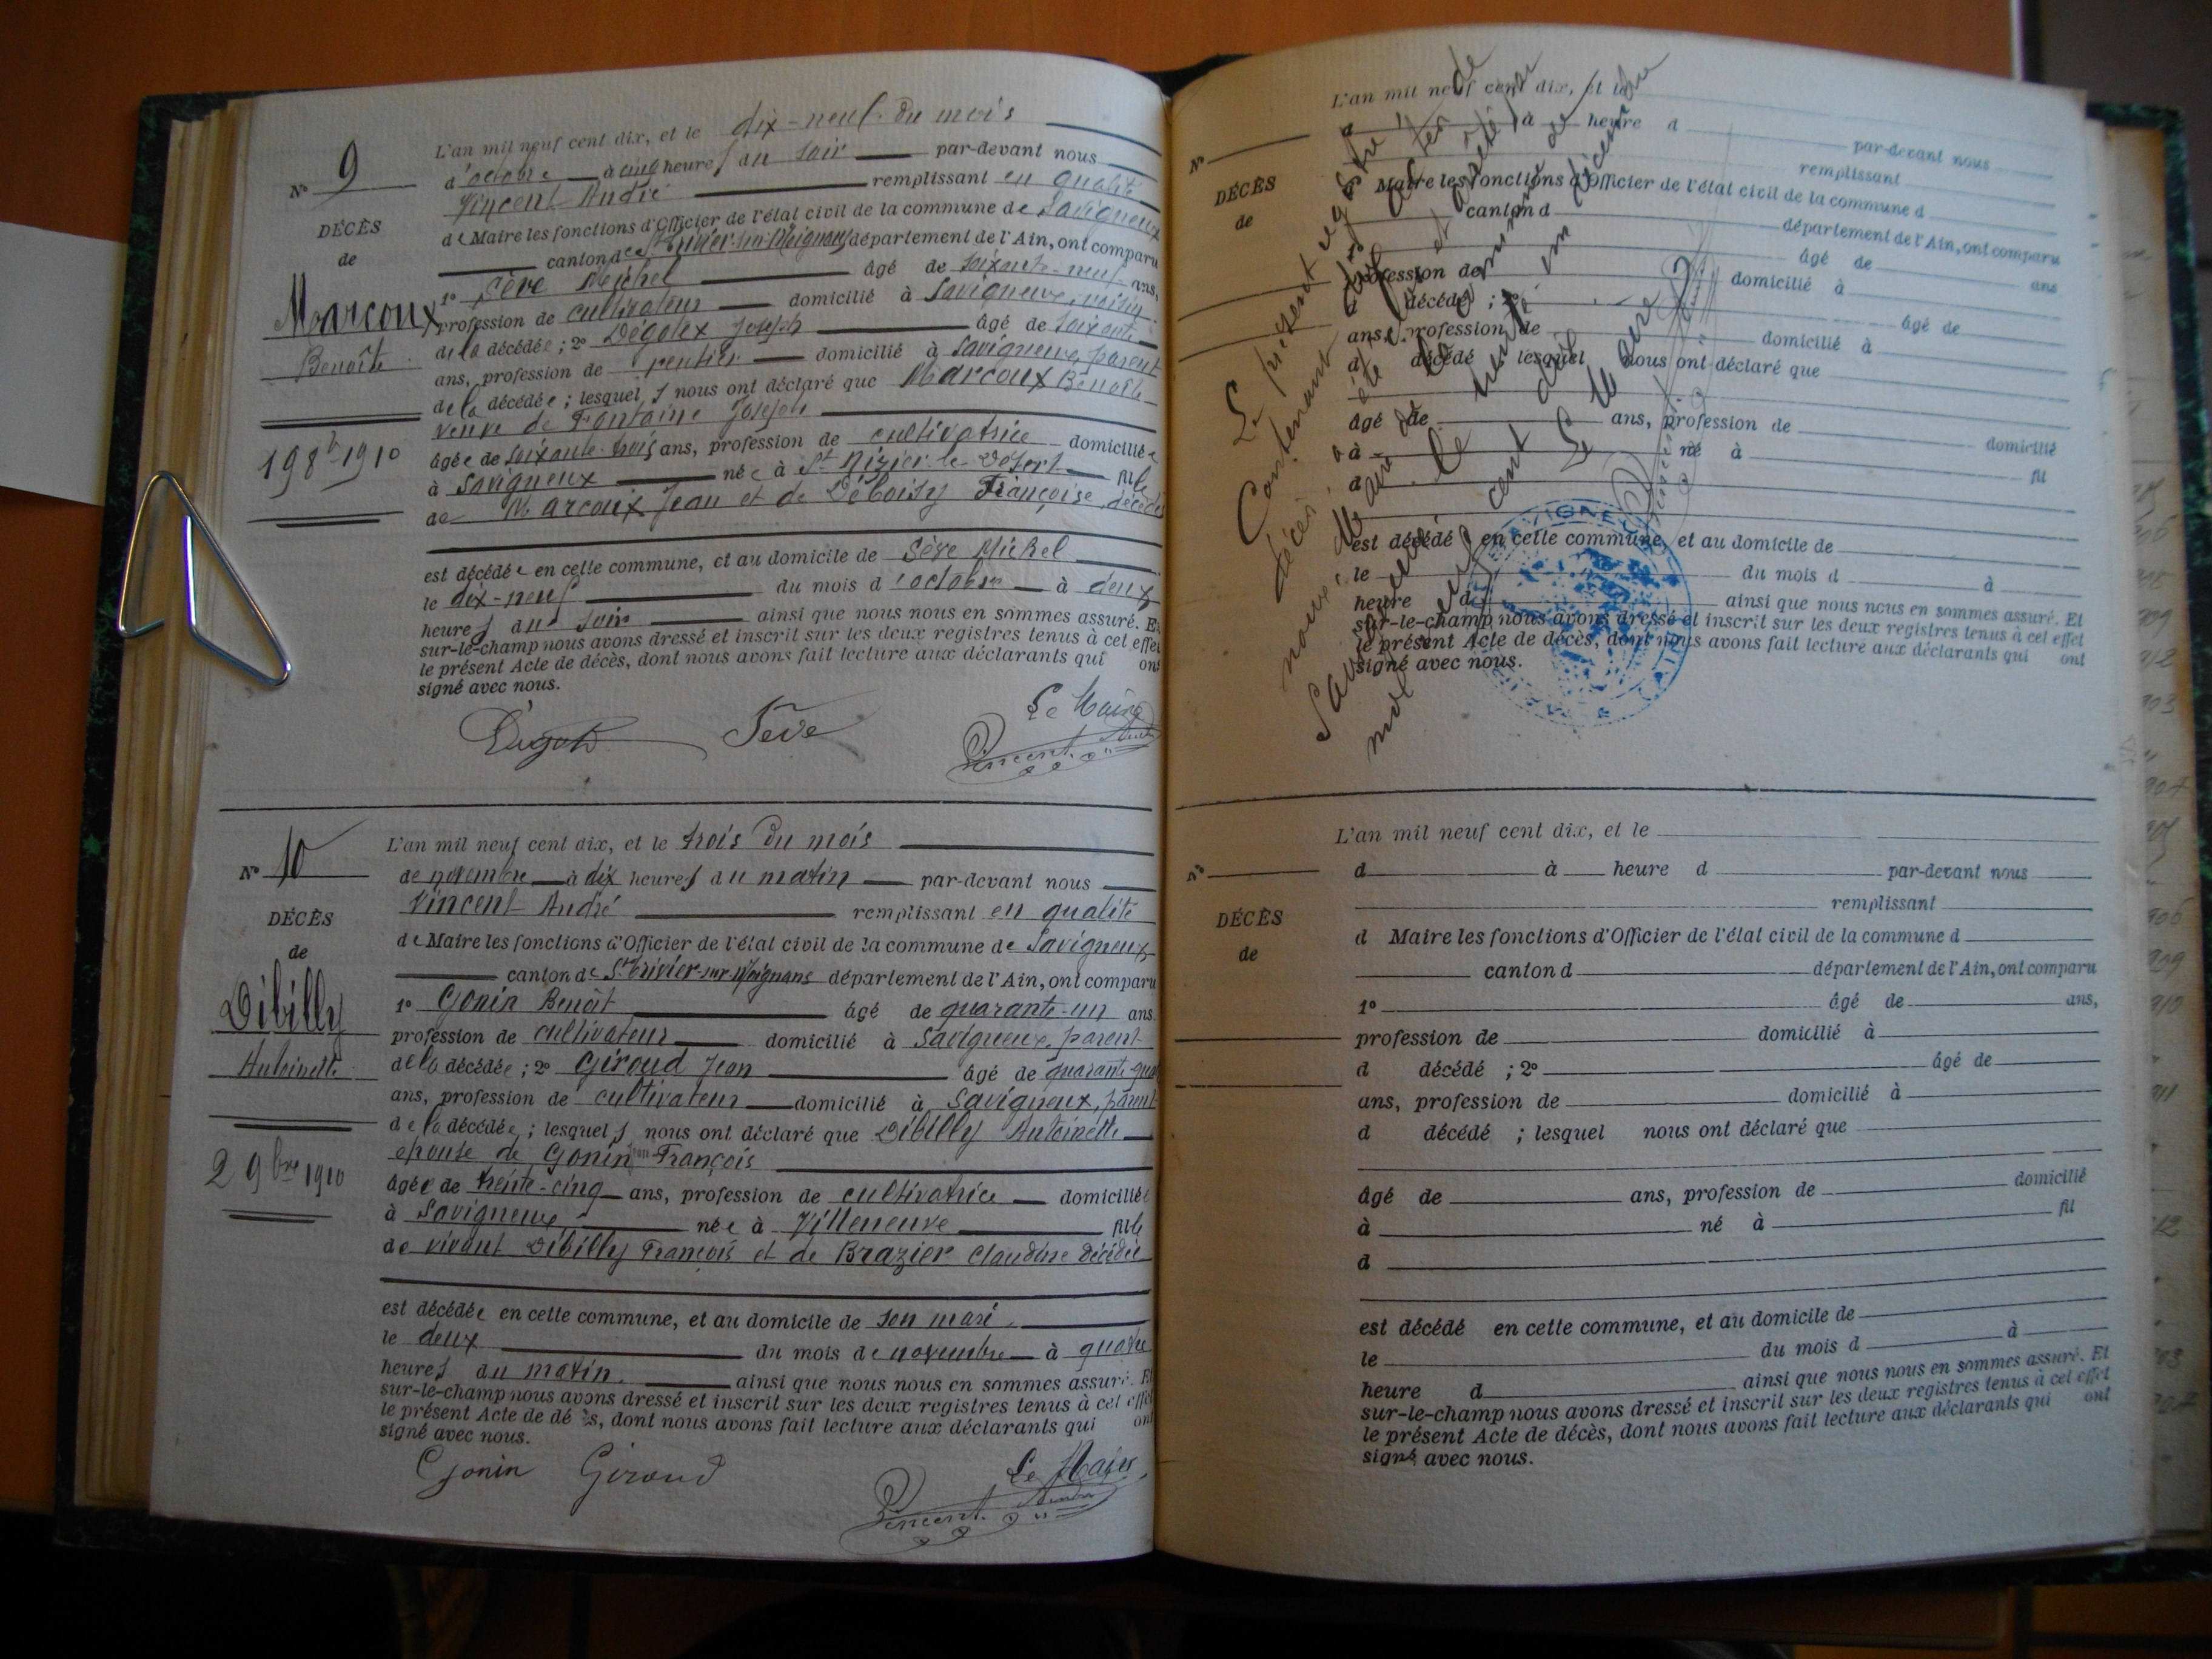 N° 9
DÉCÈS
de
Marcoux
Benoîte
19 8bre 1910
L'an mil neuf cent dix, et le dix-neuf du mois
d'octobre à cinq heures du soir par-devant nous
Vincent André remplissant en qualité
de Maire les fonctions d'Officier de l'état civil de la commune de Savigneux
canton de St Trivier-sur-Moignans département de l'Ain, ont comparu
1° Sève Michel âgé de soixante-neuf ans,
profession de cultivateur domicilié à Savigneux, voisin
de la décédée ; 2° Dégoley Joseph âgé de soixante
ans, profession de rentier domicilié à Savigneux, parent
de la décédée ; lesquels nous ont déclaré que Marcoux Benoîte
veuve de Fontaine Joseph
âgée de soixante-trois ans, profession de cultivatrice domiciliée
à Savigneux née à St Nizier-le-Désert fille
de Marcoux Jean et de Françoise, décédés
est décédée en cette commune, et au domicile de Sève Michel
le dix-neuf du mois d'octobre à deux
heures du soir ainsi que nous nous en sommes assuré. Et
sur-le-champ nous avons dressé et inscrit sur les deux registres tenus à cet effet
le présent Acte de décès, dont nous avons fait lecture aux déclarants qui ont
signé avec nous.
Sève
Le Maire
Vincent André
N° 10
DÉCÈS
de
Dibilly
Antoinette
2 9bre 1910
L'an mil neuf cent dix, et le trois du mois
de novembre à dix heures du matin par-devant nous
Vincent André remplissant en qualité
de Maire les fonctions d'Officier de l'état civil de la commune de Savigneux
canton de St Trivier-sur-Moignans département de l'Ain, ont comparu
1° Gonin Benoît âgé de quarante-un ans.
profession de cultivateur domicilié à Savigneux, parent
de la décédée ; 2° Giroud Jean âgé de quarante-qua
ans, profession de cultivateur domicilié à Savigneux, parent
de la décédée ; lesquels nous ont déclaré que Dibilly Antoinette
épouse de Gonin François
âgée de trente-cinq ans, profession de cultivatrice domiciliée
à Savigneux née à Villeneuve fille
de vivant Dibilly François et de Brazier Claudine décédée
est décédée en cette commune, et au domicile de son mari.
le deux du mois de novembre à quatre
heures du matin. ainsi que nous nous en sommes assuré. Et
sur-le-champ nous avons dressé et inscrit sur les deux registres tenus à cet effet
le présent Acte de décès, dont nous avons fait lecture aux déclarants qui ont
signé avec nous.
Gonin Giroud
Le Maire
Vincent André
N°
DÉCÈS
de
L'an mil neuf cent dix, et le
d à heure d par-devant nous
remplissant
d Maire les fonctions d'Officier de l'état civil de la commune d
canton d département de l'Ain, ont comparu
âgé de ans
profession de domicilié à
d décédé ; 2° âgé de
ans, profession de domicilié à
d décédé lesquel nous ont déclaré que
âgé de ans, profession de domicilié
à né à fil
d
est décédé en cette commune, et au domicile de
le du mois d à
heure d ainsi que nous nous en sommes assuré. Et
sur-le-champ nous avons dressé et inscrit sur les deux registres tenus à cet effet
le présent Acte de décès, dont nous avons fait lecture aux déclarants qui ont
signé avec nous.
Le présent registre
Contenant dix actes de
décès, a été clos et arrêté par
nous, Maire de la commune de
Savigneux, le trente un décembre
mil neuf cent dix
Le Maire
N°
DÉCÈS
de
L'an mil neuf cent dix, et le
d à heure d par-devant nous
remplissant
d Maire les fonctions d'Officier de l'état civil de la commune d
canton d département de l'Ain, ont comparu
1° âgé de ans,
profession de domicilié à
d décédé ; 2° âgé de
ans, profession de domicilié à
d décédé ; lesquel nous ont déclaré que
âgé de ans, profession de domicilié
à né à fil
d
est décédé en cette commune, et au domicile de
le du mois d à
heure d ainsi que nous nous en sommes assuré. Et
sur-le-champ nous avons dressé et inscrit sur les deux registres tenus à cet effet
le présent Acte de décès, dont nous avons fait lecture aux déclarants qui ont
signé avec nous.